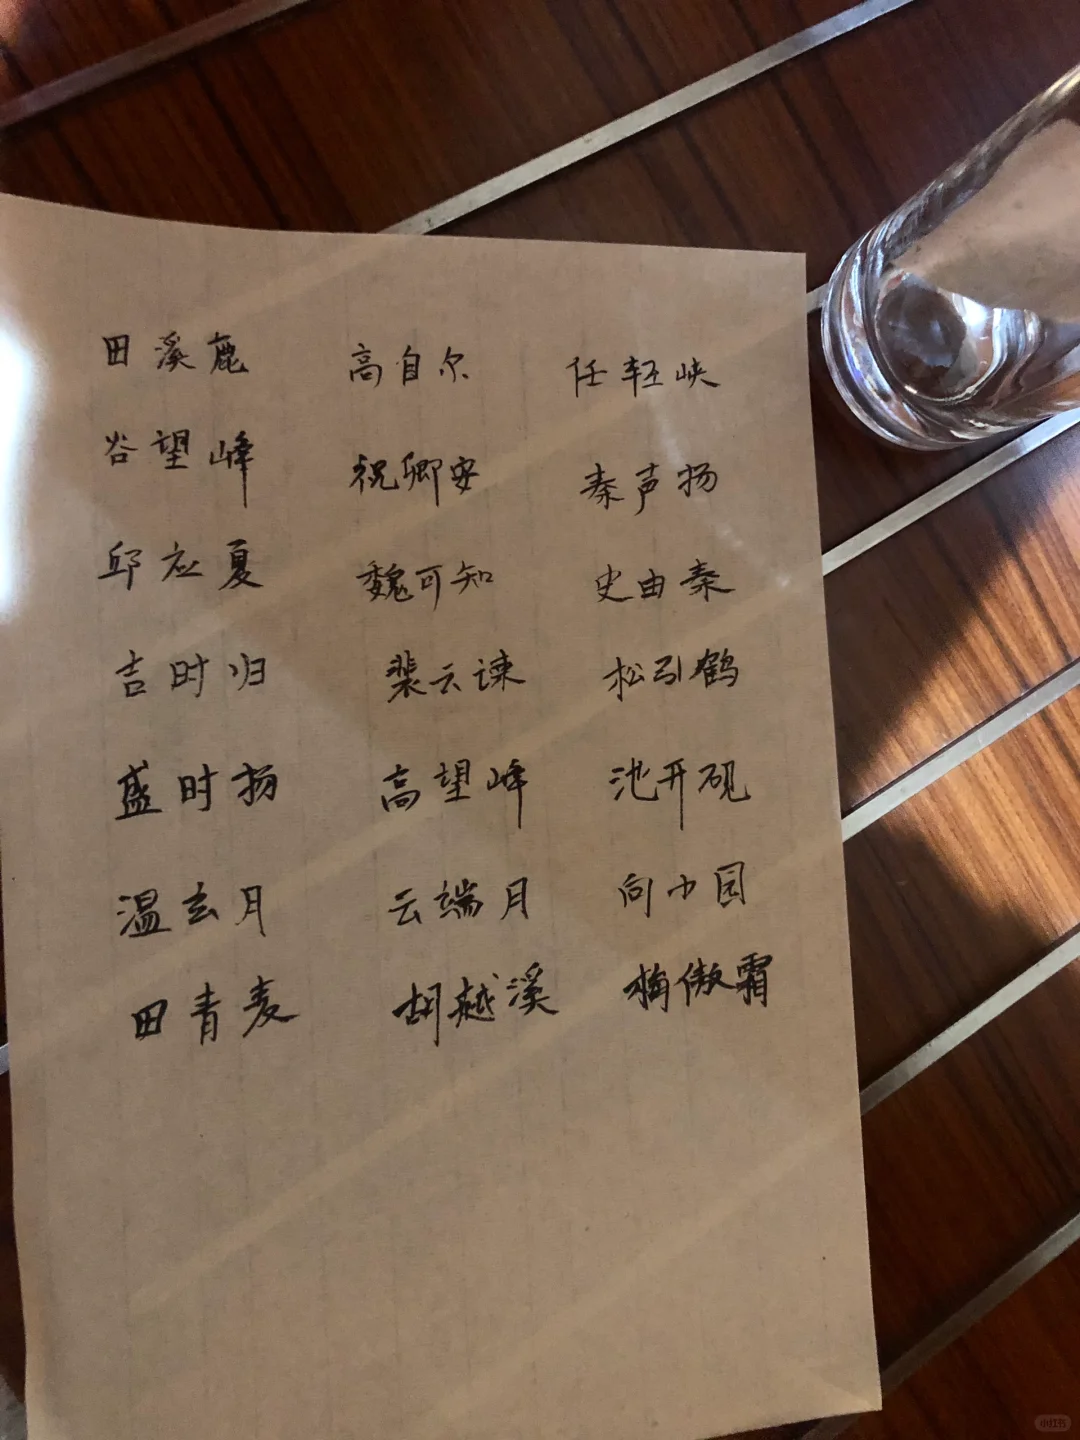 田溪鹿 高自尔 任轻峡
谷望峰 祝卿安 秦声扬
邱应夏 魏可知 史由秦
吉时归 裴云谏 松引鹤
盛时扬 高望峰 池开砚
温玄月 云端月 向小园
田青麦 胡越溪 梅傲霜
小红书